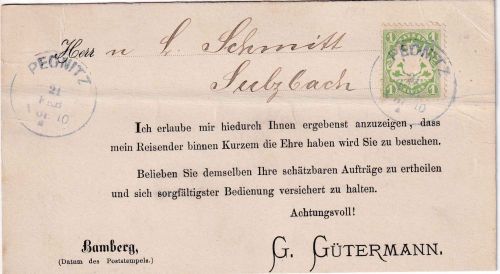 Herr n L. Schmitt
Sulzbach
PEGNITZ
21
FEB
10
1 1
1 1
PEGNITZ
21
10
Ich erlaube mir hiedurch Ihnen ergebenst anzuzeigen, dass
mein Reisender binnen Kurzem die Ehre haben wird Sie zu besuchen.
Belieben Sie demselben Ihre schätzbaren Aufträge zu ertheilen
und sich sorgfältigster Bedienung versichert zu halten.
Achtungsvoll!
Bamberg,
(Datum des Poststempels.)
G. GÜTERMANN.